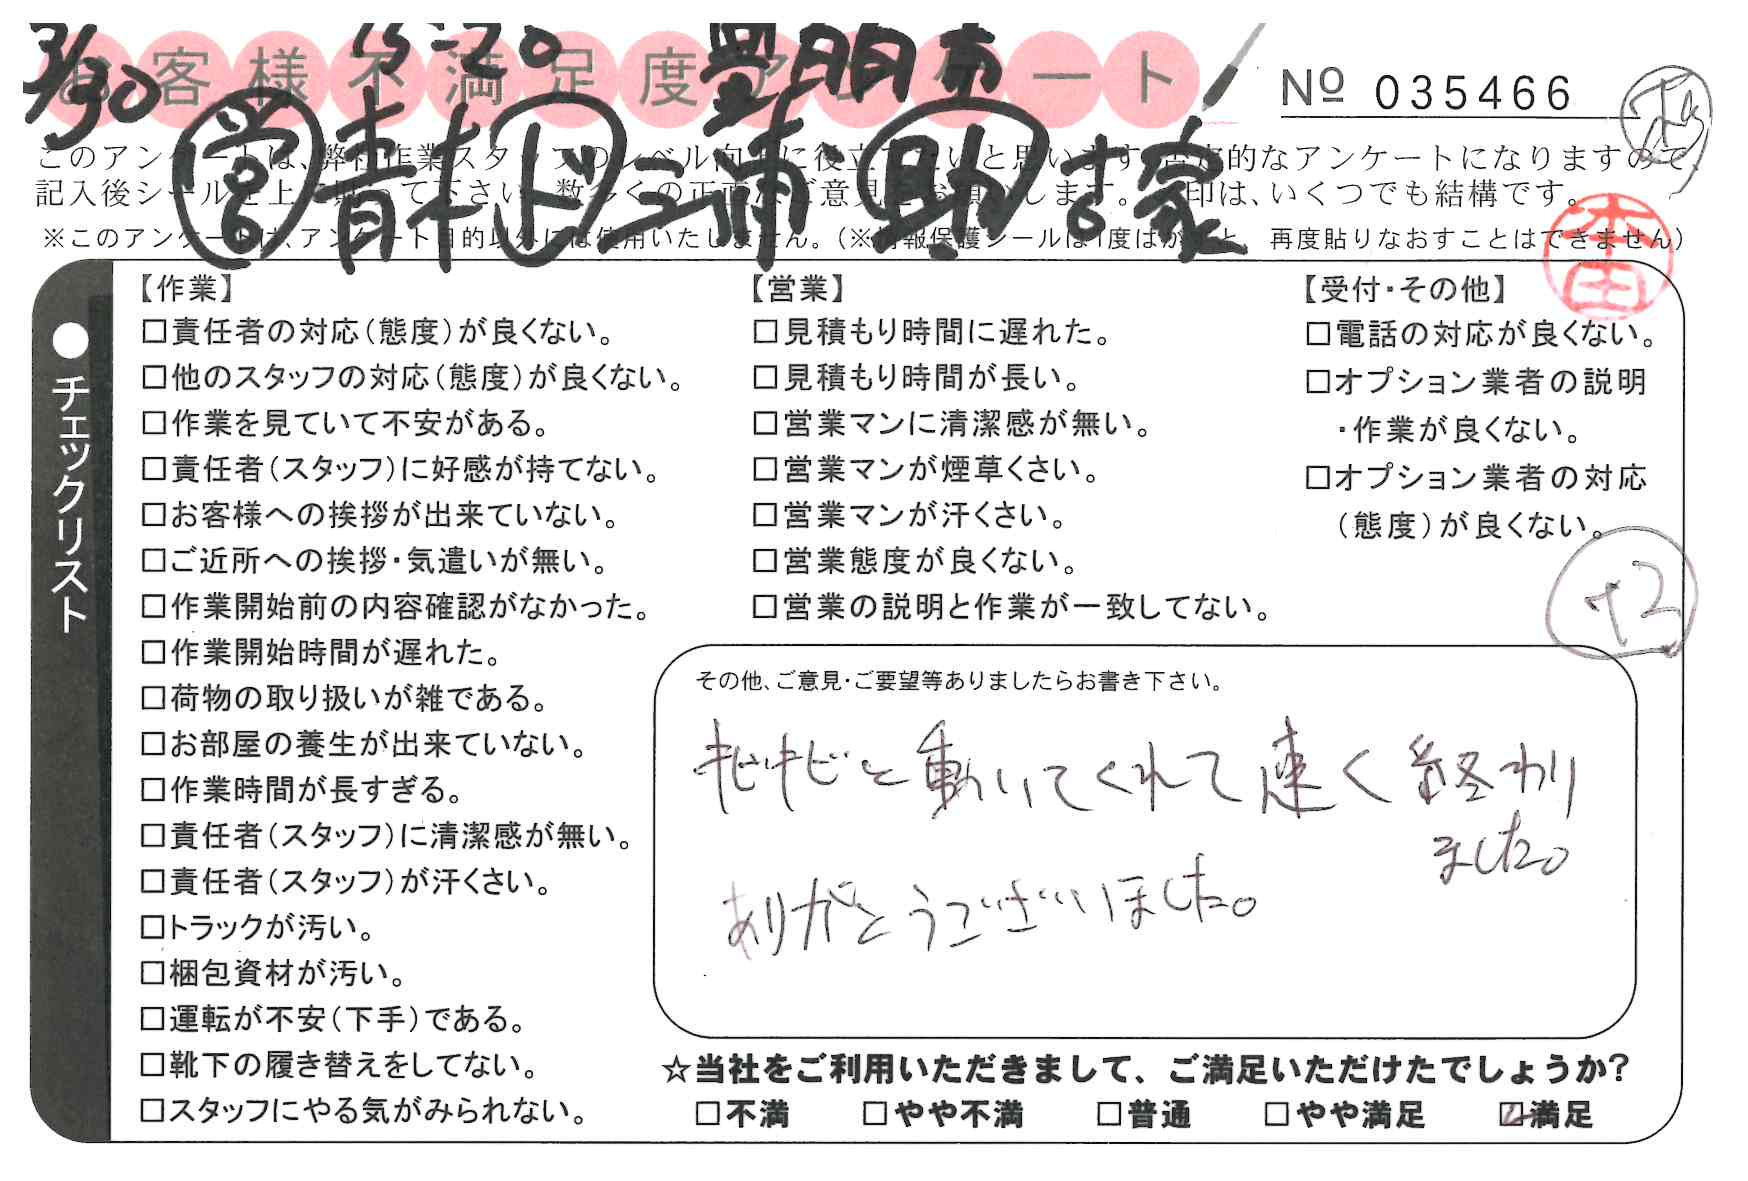 3/30 15-20 豊明市
お客様不満足度アンケート
No 035466
営 青木 ド 三浦 助 古家
このアンケートは、弊社作業スタッフのレベル向上に役立てたいと思います。否定的なアンケートになりますので、
記入後シールを上に貼って下さい。数多くの正直なご意見をお願いします。✓印は、いくつでも結構です。
※このアンケートは、アンケート目的以外には使用いたしません。(※情報保護シールは1度はがすと、再度貼りなおすことはできません)
本田
●チェックリスト
【作業】
□責任者の対応(態度)が良くない。
□他のスタッフの対応(態度)が良くない。
□作業を見ていて不安がある。
□責任者(スタッフ)に好感が持てない。
□お客様への挨拶が出来ていない。
□ご近所への挨拶・気遣いが無い。
□作業開始前の内容確認がなかった。
□作業開始時間が遅れた。
□荷物の取り扱いが雑である。
□お部屋の養生が出来ていない。
□作業時間が長すぎる。
□責任者(スタッフ)に清潔感が無い。
□責任者(スタッフ)が汗くさい。
□トラックが汚い。
□梱包資材が汚い。
□運転が不安(下手)である。
□靴下の履き替えをしてない。
□スタッフにやる気がみられない。
【営業】
□見積もり時間に遅れた。
□見積もり時間が長い。
□営業マンに清潔感が無い。
□営業マンが煙草くさい。
□営業マンが汗くさい。
□営業態度が良くない。
□営業の説明と作業が一致してない。
【受付・その他】
□電話の対応が良くない。
□オプション業者の説明
・作業が良くない。
□オプション業者の対応
(態度)が良くない。
+3
その他、ご意見・ご要望等ありましたらお書き下さい。
キビキビと動いてくれて速く終わり
ました。
ありがとうございました。
☆当社をご利用いただきまして、ご満足いただけたでしょうか?
□不満 □やや不満 □普通 □やや満足 ☑満足